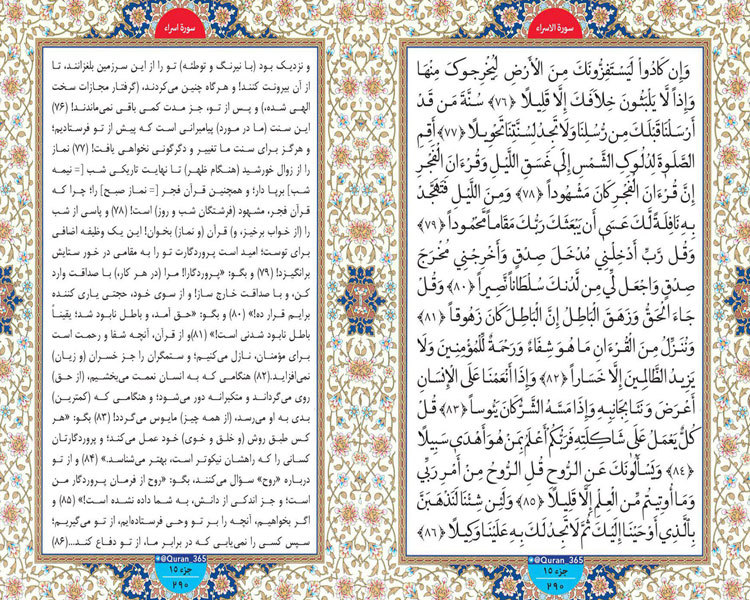 سورة الاسراء
وَإِن كَادُواْ لَيَسْتَفِزُّونَكَ مِنَ الْأَرْضِ لِيُخْرِجوكَ مِنْهَا
وَإِذاً لَّا يَلْبَثُونَ خِلَافَكَ إِلَّا قَلِيلاً ﴿٧٦﴾ سُنَّةَ مَن قَدْ
أَرْسَلْنَا قَبْلَكَ مِن رُّسُلِنَا وَلَا تَجِدُ لِسُنَّتِنَا تَحْوِيلاً ﴿٧٧﴾ أَقِمِ
الصَّلَوةَ لِدُلُوكِ الشَّمْسِ إِلَى غَسَقِ اللَّيْلِ وَقُرْءَانَ الْفَجْرِ
إِنَّ قُرْءَانَ الْفَجْرِ كَانَ مَشْهُوداً ﴿٧٨﴾ وَمِنَ اللَّيْلِ فَتَهَجَّدْ
بِهِ نَافِلَةً لَّكَ عَسَى أَن يَبْعَثَكَ رَبُّكَ مَقَاماً مَّحْمُوداً ﴿٧٩﴾
وَقُل رَّبِّ أَدْخِلْنِي مُدْخَلَ صِدْقٍ وَأَخْرِجْنِي مُخْرَجَ
صِدْقٍ وَاجْعَل لِّي مِن لَّدُنكَ سُلْطَاناً نَّصِيراً ﴿٨٠﴾ وَقُلْ
جَاءَ الْحَقُّ وَزَهَقَ الْبَاطِلُ إِنَّ الْبَاطِلَ كَانَ زَهُوقاً ﴿٨١﴾
وَنُنَزِّلُ مِنَ الْقُرْءَانِ مَا هُوَ شِفَاءٌ وَرَحْمَةٌ لِّلْمُؤْمِنِينَ وَلَا
يَزِيدُ الظَّالِمِينَ إِلَّا خَسَاراً ﴿٨٢﴾ وَإِذَا أَنْعَمْنَا عَلَى الْإِنسَانِ
أَعْرَضَ وَنَئَا بِجَانِبِهِ وَإِذَا مَسَّهُ الشَّرُّ كَانَ يَئُوساً ﴿٨٣﴾ قُلْ
كُلٌّ يَعْمَلُ عَلَى شَاكِلَتِهِ فَرَبُّكُمْ أَعْلَمُ بِمَنْ هُوَ أَهْدَى سَبِيلاً
﴿٨٤﴾ وَيَسْأَلُونَكَ عَنِ الرُّوحِ قُلِ الرُّوحُ مِنْ أَمْرِ رَبِّي
وَمَا أُوتِيتُم مِّنَ الْعِلْمِ إِلَّا قَلِيلاً ﴿٨٥﴾ وَلَئِن شِئْنَا لَنَذْهَبَنَّ
بِالَّذِي أَوْحَيْنَا إِلَيْكَ ثُمَّ لَا تَجِدُ لَكَ بِهِ عَلَيْنَا وَكِيلاً ﴿٨٦﴾
@Quran_365
جزء ۱۵
۲۹۰
سورة اسراء
و نزدیک بود (با نیرنگ و توطئه) تو را از این سرزمین بلغزانند، تا
از آن بیرونت کنند! و هرگاه چنین می‌کردند، (گرفتار مجازات سخت
الهی شده،) و پس از تو، جز مدت کمی باقی نمی‌ماندند! (۷۶)
این سنت (ما در مورد) پیامبرانی است که پیش از تو فرستادیم؛
و هرگز برای سنت ما تغییر و دگرگونی نخواهی یافت! (۷۷) نماز
را از زوال خورشید (هنگام ظهر) تا نهایت تاریکی شب [= نیمه
شب] برپا دار؛ و همچنین قرآن فجر [= نماز صبح] را؛ چرا که
قرآن فجر، مشهود (فرشتگان شب و روز) است! (۷۸) و پاسی از شب
را (از خواب برخیز، و) قرآن (و نماز) بخوان! این یک وظیفه اضافی
برای توست؛ امید است پروردگارت تو را به مقامی در خور ستایش
برانگیزد! (۷۹) و بگو: «پروردگارا! مرا (در هر کار،) با صداقت وارد
کن، و با صداقت خارج ساز! و از سوی خود، حجتی یاری کننده
برایم قرار ده!» (۸۰) و بگو: «حق آمد، و باطل نابود شد؛ یقیناً
باطل نابود شدنی است!» (۸۱)و از قرآن، آنچه شفا و رحمت است
برای مؤمنان، نازل می‌کنیم؛ و ستمگران را جز خسران (و زیان)
نمی‌افزاید.(۸۲) هنگامی که به انسان نعمت می‌بخشیم، (از حق)
روی می‌گرداند و متکبرانه دور می‌شود؛ و هنگامی که (کمترین)
بدی به او می‌رسد، (از همه چیز) مایوس می‌گردد! (۸۳) بگو: «هر
کس طبق روش (و خلق و خوی) خود عمل می‌کند؛ و پروردگارتان
کسانی را که راهشان نیکوتر است، بهتر می‌شناسد.» (۸۴) و از تو
درباره «روح» سؤال می‌کنند، بگو: «روح از فرمان پروردگار من
است؛ و جز اندکی از دانش، به شما داده نشده است!» (۸۵) و
اگر بخواهیم، آنچه را بر تو وحی فرستاده‌ایم، از تو می‌گیریم؛
سپس کسی را نمی‌یابی که در برابر ما، از تو دفاع کند...(۸۶)
@Quran_365
جزء ۱۵
۲۹۰